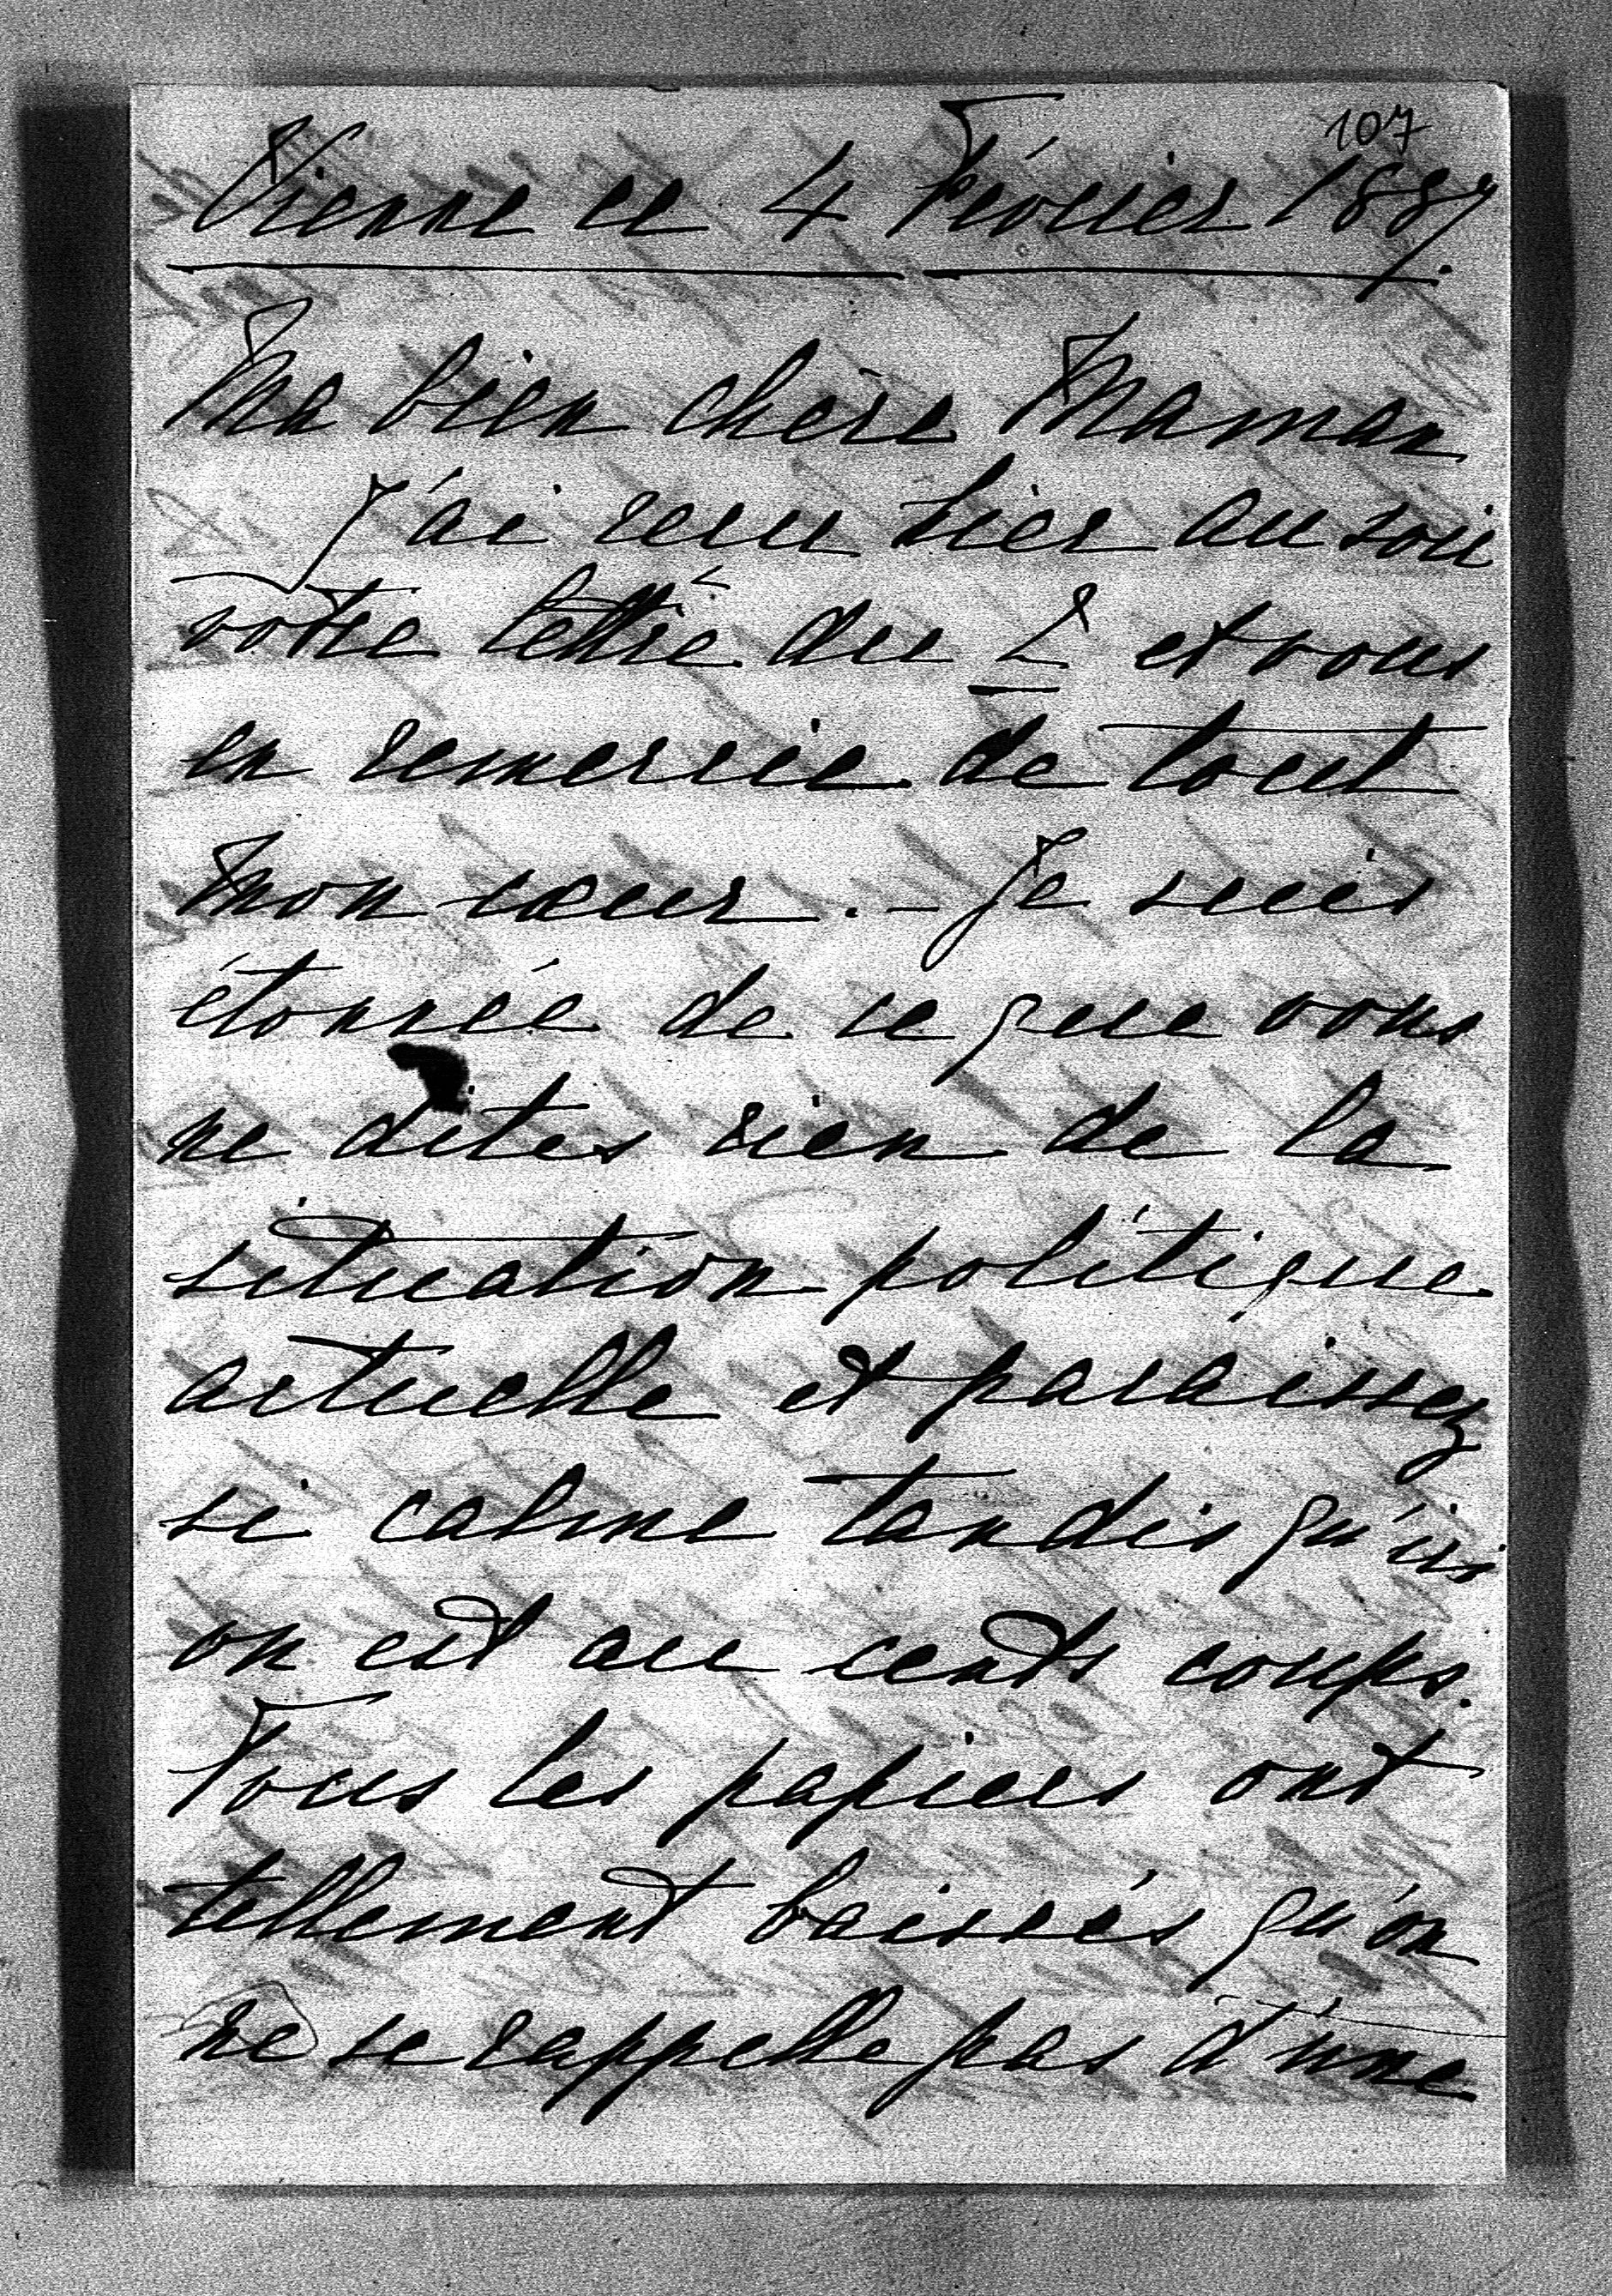 107
Vienne ce 4 Février 1887.
Ma bien chère Maman
J'ai reçu hier au soir
votre lettre du 2 et vous
en remercie de tout
mon cœur. – Je suis
étonnée de ce que vous
ne dites rien de la
situation politique
actuelle et paraissez
si calme tandis qu'ici
on est au cents coups.
Tous les papiers ont
tellement baissés qu'on
ne se rappelle pas d'une